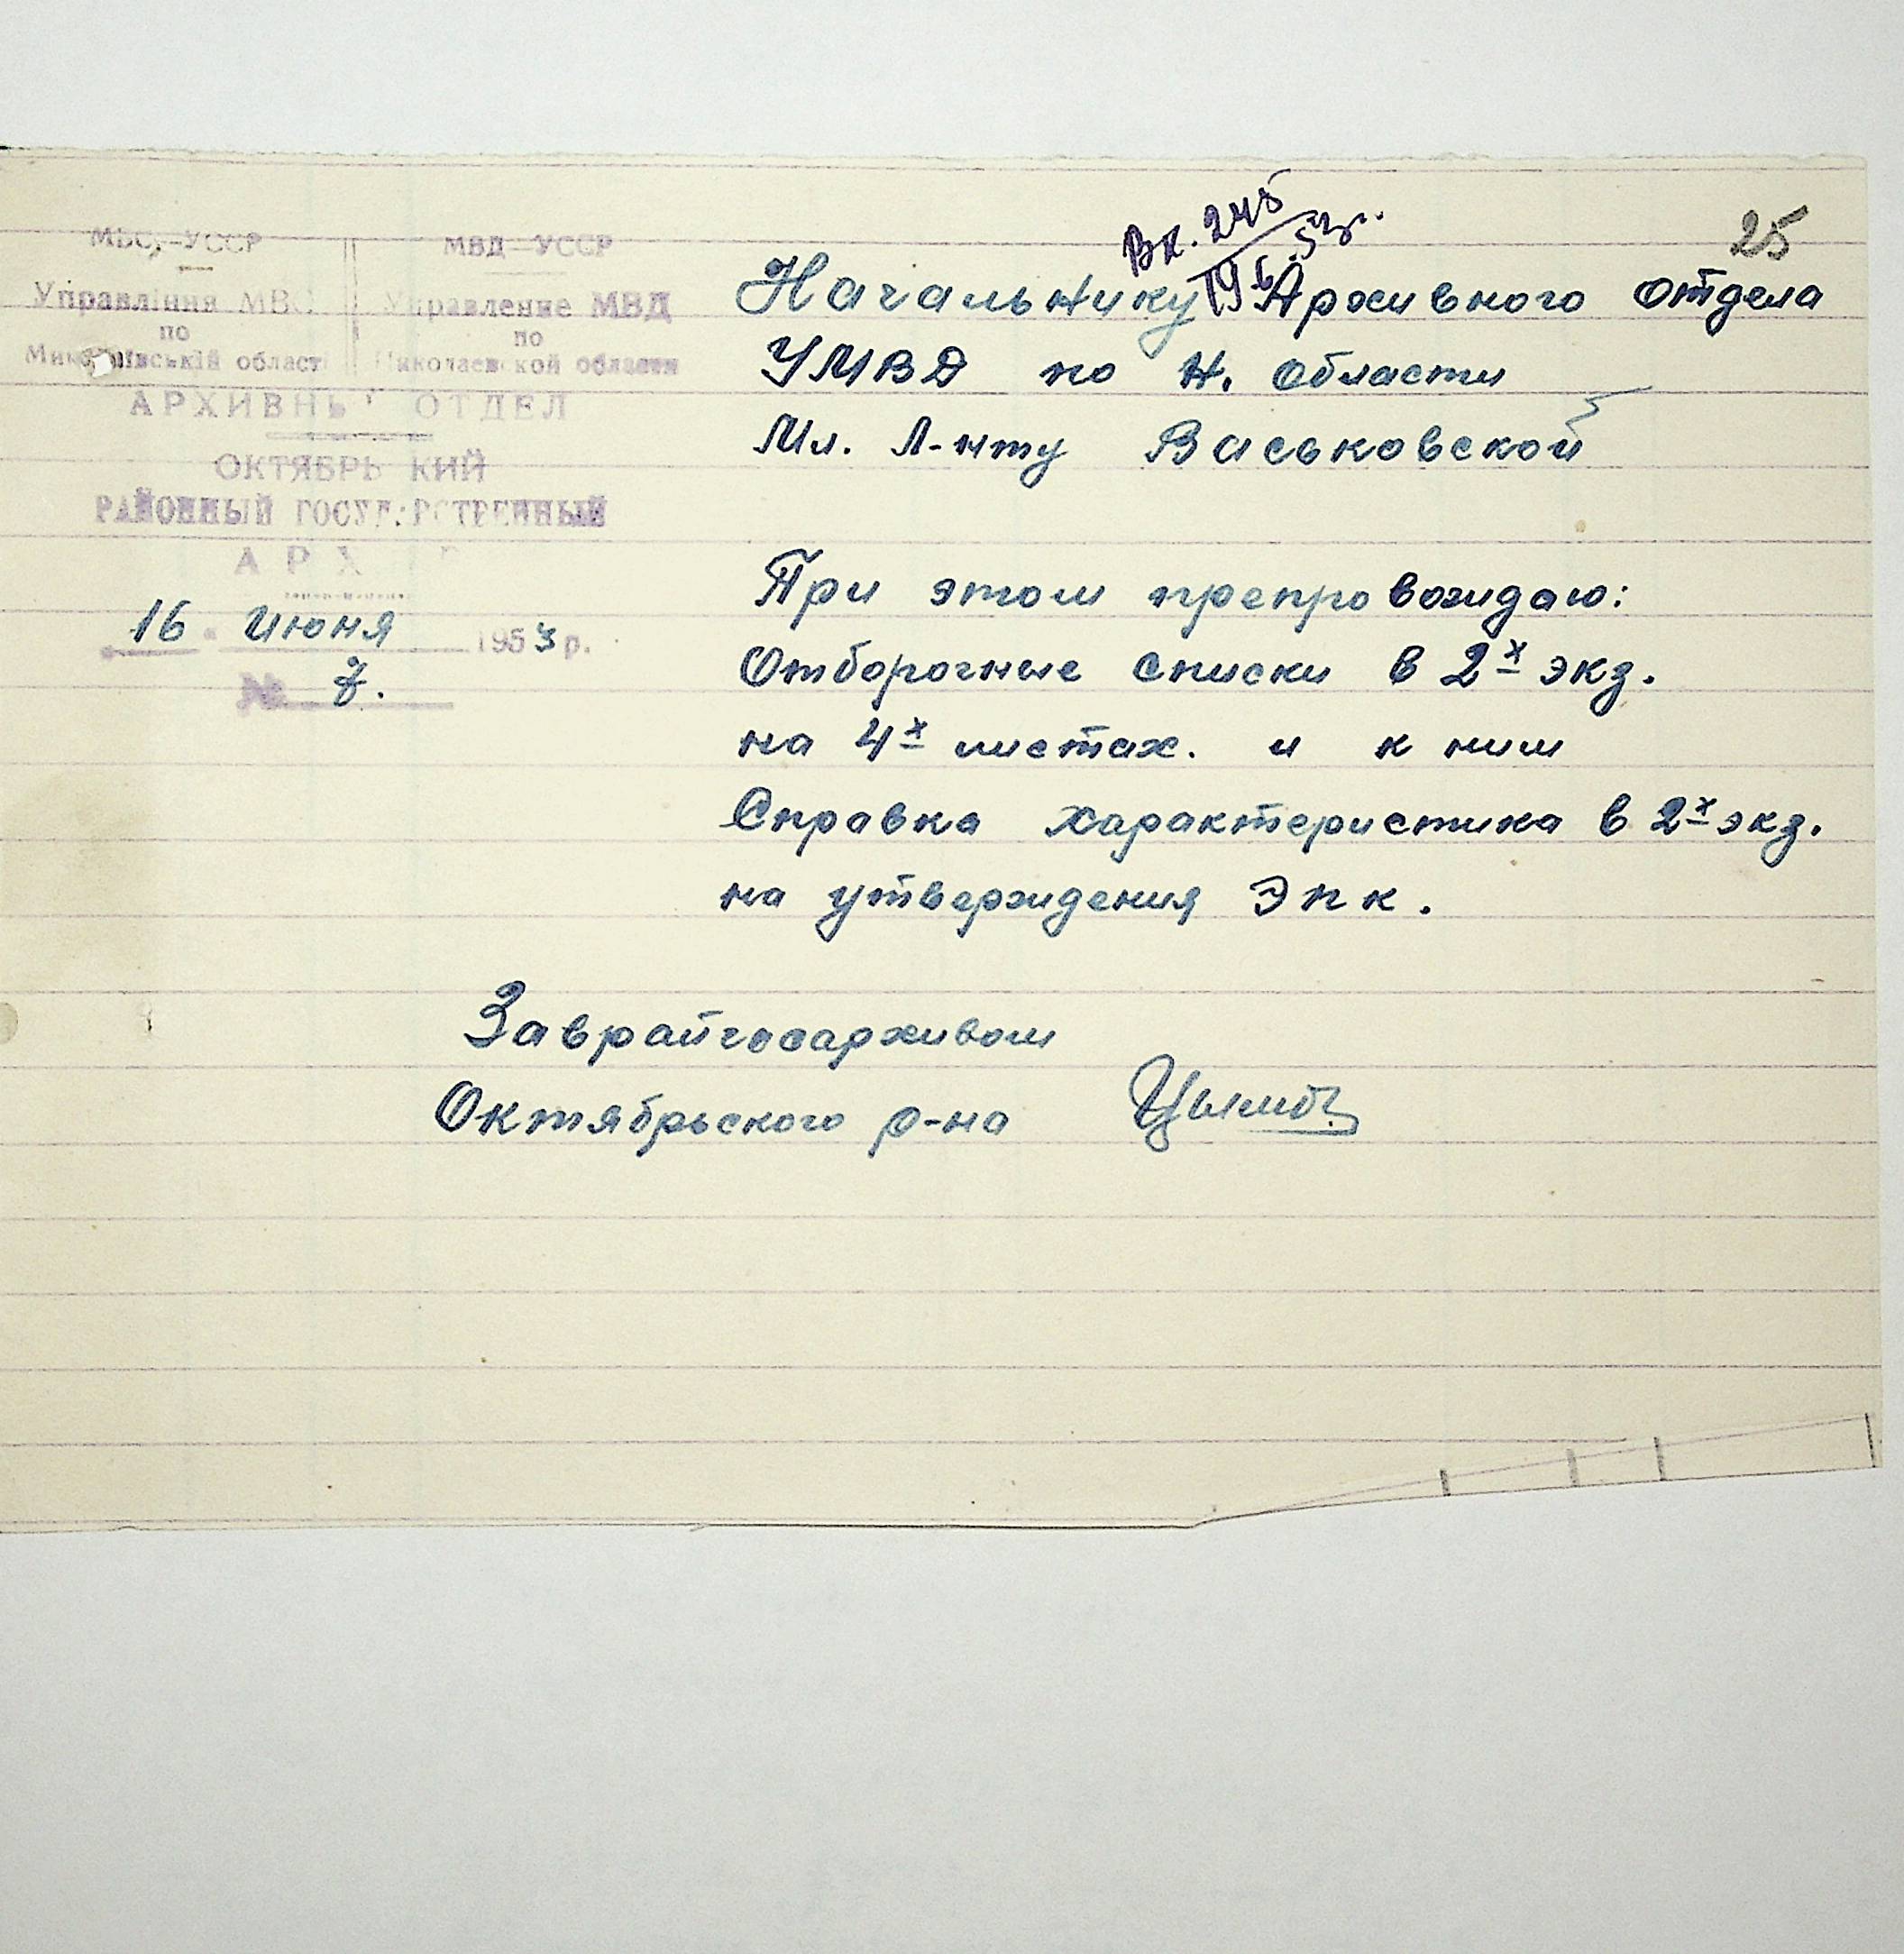 МВС–УССР
Управління МВС
по
Миколаївській області
МВД–УССР
Управление МВД
по
Николаевской области
АРХИВНЫЙ ОТДЕЛ
ОКТЯБРЬСКИЙ
РАЙОННЫЙ ГОСУДАРСТВЕННЫЙ
АРХИВ
16 " июня 1953 р.
№ 7.
Вх. 245
19/6 53г.
25
Начальнику Архивного отдела
УМВД по Н. области
Мл. Л-нту Васьковской
При этом препровождаю:
Отборочные списки в 2х экз.
на 4х листах. и к ним
Справка характеристика в 2х экз.
на утверждения ЭПК.
Заврайгосархивом
Октябрьского р-на